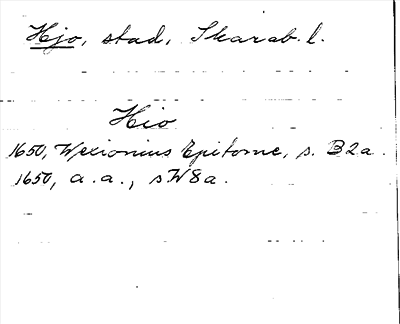 Hjo, stad, Skarab. l.
Hio
1650, Wexionius Epitome, s. B2a.
1650, a. a., s W8a.